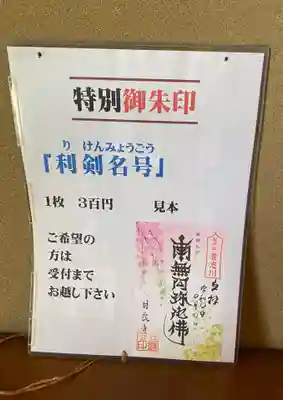 特別御朱印
り けんみょうごう
「利剣名号」
1枚 3百円 見本
ご希望の
方は
受付まで
お越し下さい
南無阿弥陀佛